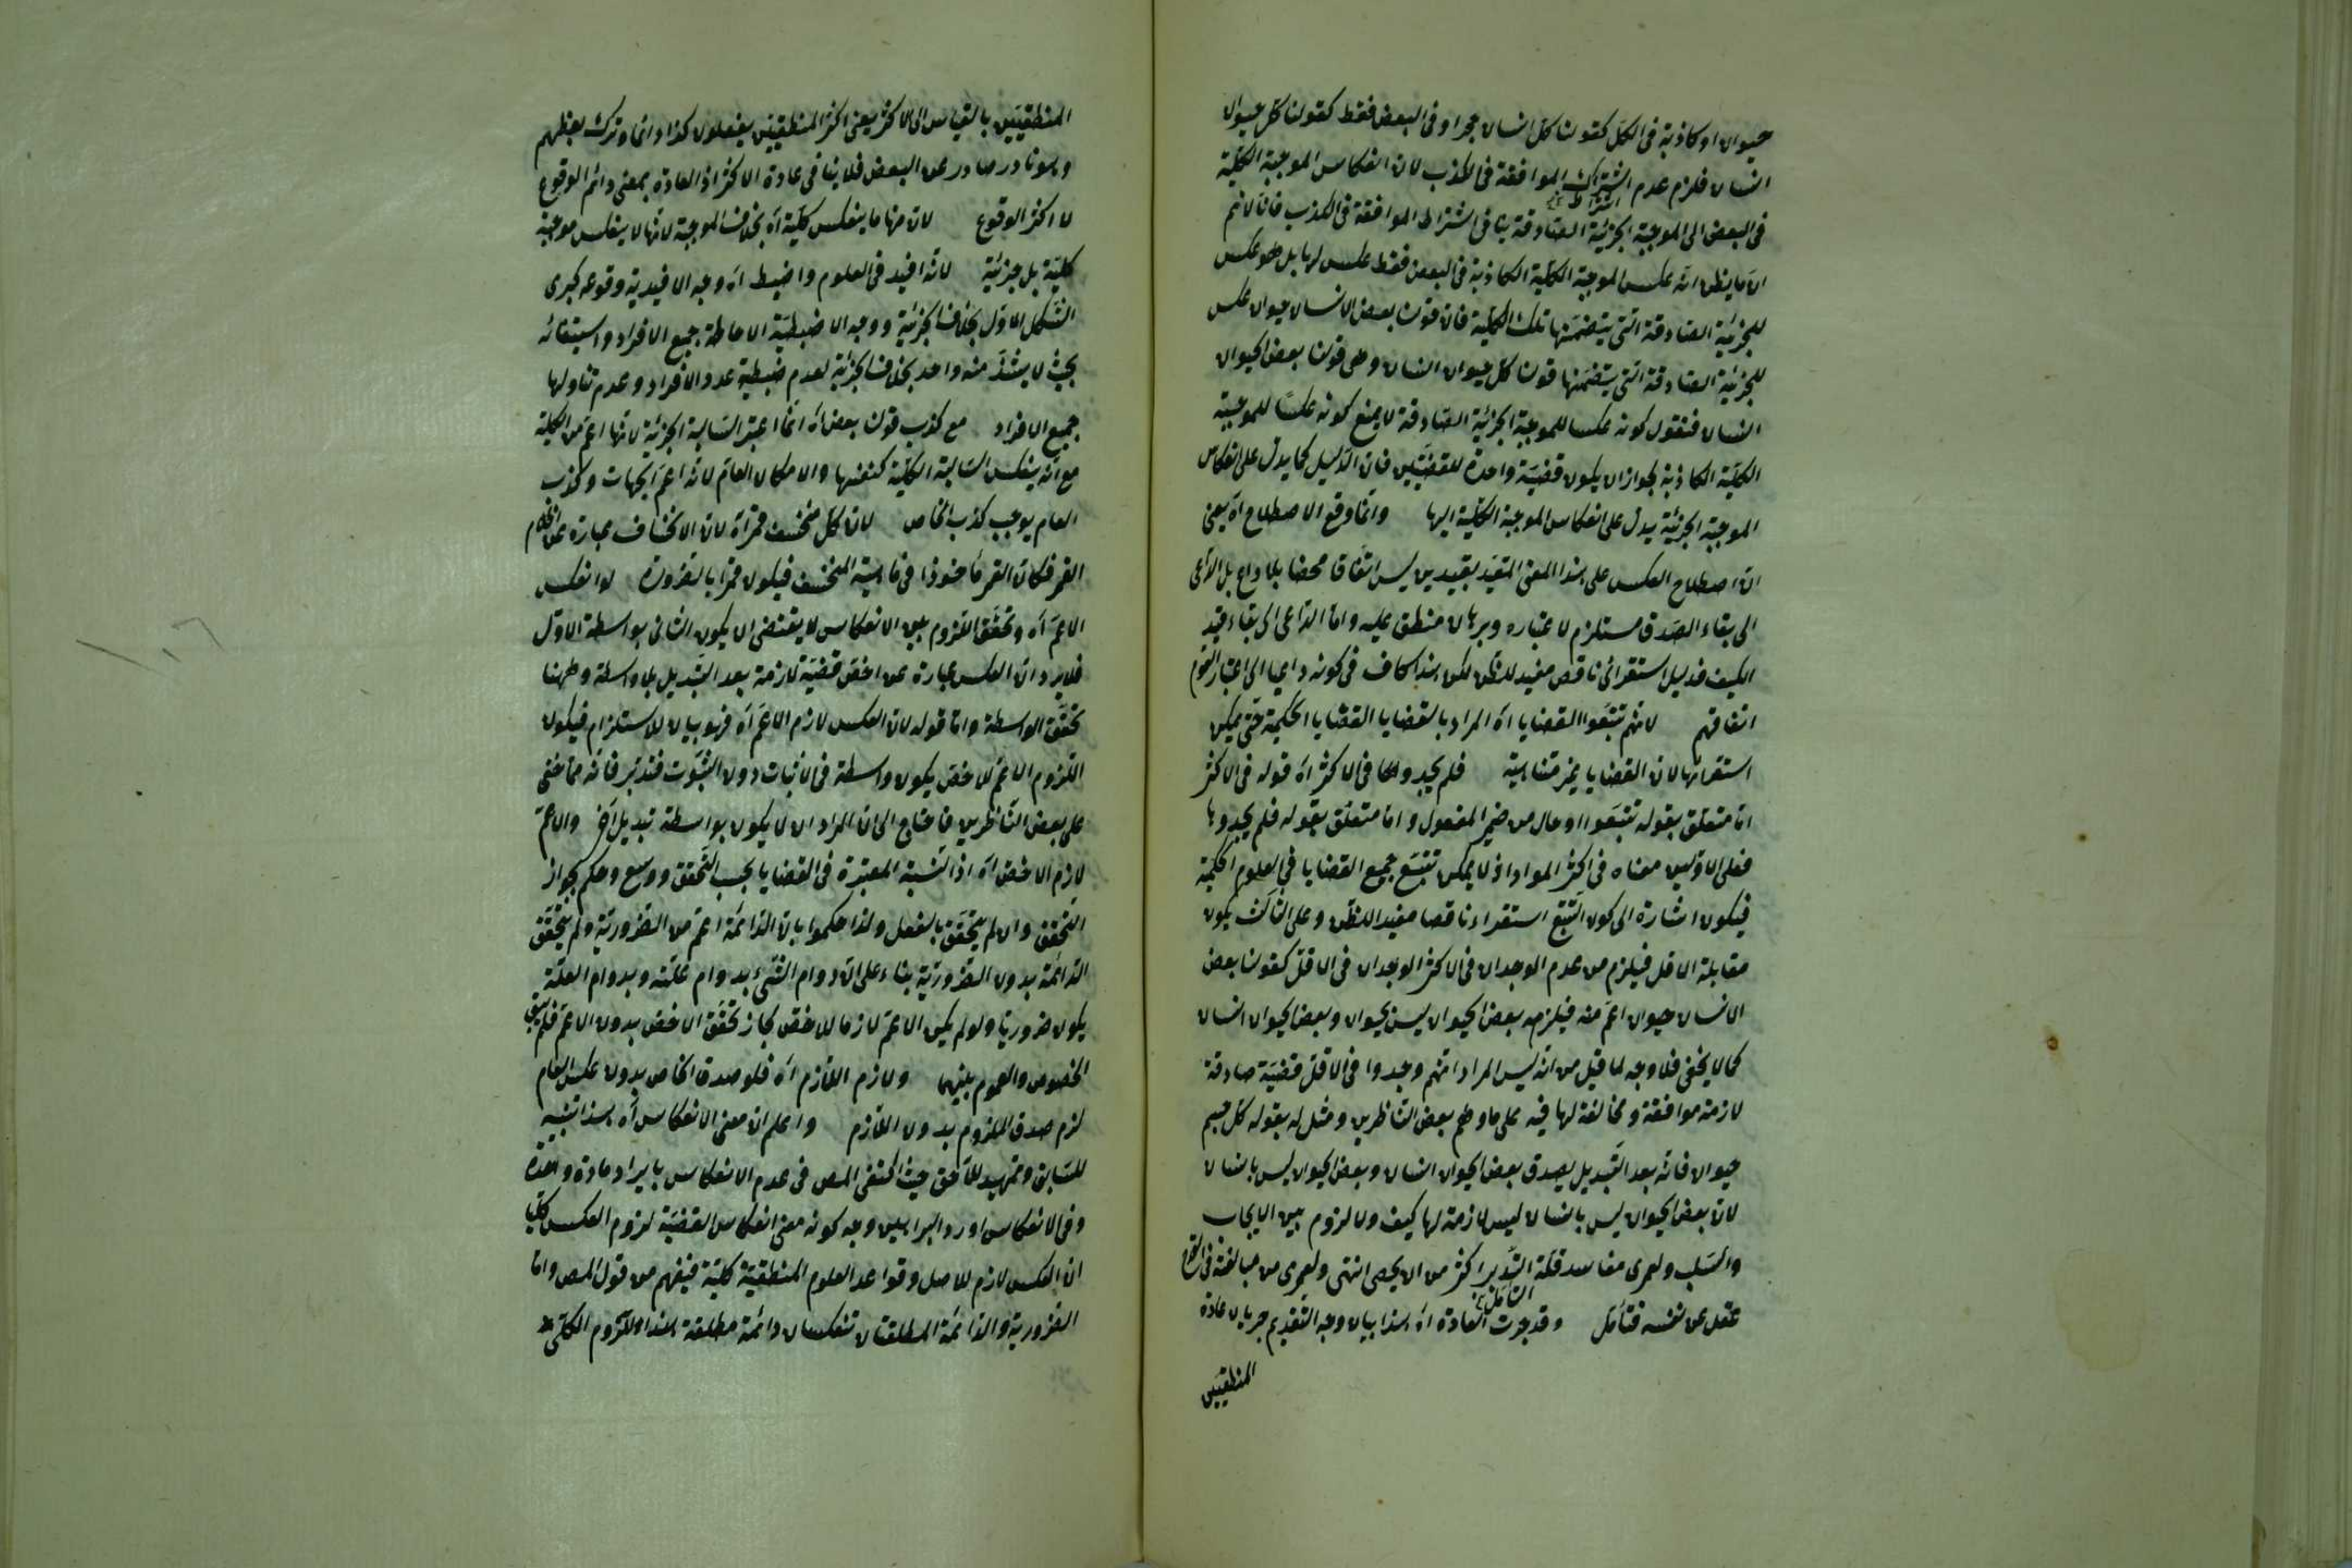 حيوان او كاذبة فى الكل كقولنا كل انسان حجر او فى البعض فقط كقولنا كل حيوان
انسان فلزم عدم اشتراك الموافقة فى الكذب لان انعكاس الموجبة الكلية
اشتراط
فى البعض الى الموجبة الجزئية الصادقة ينافى اشتراط الموافقة فى الكذب فانا لانم
ان ما يظن انه عكس الموجبة الكلية الكاذبة فى البعض فقط عكس لها بل هو عكس
للجزئية الصادقة التى يتضمنها تلك الكلية فان قولنا بعض الانسان حيوان عكس
للجزئية الصادقة التى يتضمنها قولنا كل حيوان انسان وهى قولنا بعض الحيوان
انسان فنقول كونه عكسا للموجبة الجزئية الصادقة لا يمنع كونه عكسا للموجبة
الكلية الكاذبة لجواز ان يكون قضية واحدة للقضيتين فان الدليل كما يدل على انعكاس
الموجبة الجزئية يدل على انعكاس الموجبة الكلية اليها وانما وقع الاصطلاح اه يعنى
ان اصطلاح العكس على هذا المعنى المقيد بقيدين ليس اتفاقا محضا بلا داع بل الداعى
الى بقاء الصدق مستلزم لاعتباره وبرهان منطبق عليه واما الداعى الى بقاء قيد
الكيف فدليل استقرائى ناقص مفيد للظن لكن هذا كاف فى كونه داعيا الى اعتبار القوم
اتفاقهم لانهم تتبعوا القضايا اه المراد بالقضايا القضايا الحكمية حتى يمكن
استقرائها لان القضايا غير متناهية فلم يجدوها فى الاكثر اه قوله فى الاكثر
اما متعلق بقوله تتبعوا او حال من ضمير المفعول واما متعلق بقوله فلم يجدوها
فعلى الاولين معناه فى اكثر المواد اذ لا يمكن تتبع جميع القضايا فى العلوم الحكمية
فيكون اشارة الى كون التتبع استقراء ناقصا مفيدا للظن وعلى الثالث يكون
مقابلة الاقل فيلزم من عدم الوجدان فى الاكثر الوجدان فى الاقل كقولنا بعض
الانسان حيوان اعم منه فيلزمه بعض الحيوان ليس بحيوان وبعض الحيوان انسان
كما لا يخفى فلا وجه لما قيل من انه ليس المراد انهم وجدوا فى الاقل قضية صادقة
لازمة موافقة ومخالفة لها فيه على ما وهم بعض الناظرين ومثل له بقوله كل جسم
حيوان فانه بعد التبديل يصدق بعض الحيوان انسان وبعض الحيوان ليس بانسان
لان بعض الحيوان ليس بانسان ليس لازمة لها كيف ولا لزوم بين الايجاب
والسلب ولعمرى مفاسد قلة التدبر اكثر من ان يحصى انتهى ولعمرى من مبالغة فى
التأمل
غفل عن نفسه فتأمل وقد جرت العادة اه هذا بيان وجه التقديم جريان عادة
المنطقيين
المنطقيين بالقياس الى الاكثر يعنى اكثر المنطقيين يفعلون كذا وانما ترك بعضهم
وهو نادر صادر عن البعض فلا ينافى عادة الاكثر اذ العادة بمعنى دائم الوقوع
لا اكثر الوقوع لان منها ما ينعكس كلية اه بخلاف الموجبة لانها لا ينعكس موجبة
كلية بل جزئية لانه افيد فى العلوم واضبط اه وجه الافيدية وقوعه كبرى
الشكل الاول بخلاف الجزئية ووجه الاضبطية الاحاطة جميع الافراد واستيفائه
بحيث لا يشذ منه واحد بخلاف الجزئية لعدم ضبطية عدد الافراد وعدم تناولها
جميع الافراد مع كذب قولنا بعض اه انما اعتبر السالبة الجزئية لانها اعم من الكلية
مع انه ينعكس السالبة الكلية كنفسها والامكان العام لانه اعم الجهات وكذب
العام يوجب كذب الخاص لان كل منخسف قمر اه لان الانخساف عبارة عن
القمر فكان القمر مأخوذا فى ماهية المنخسف فيكون قمرا بالضرورة لو انعكس
الاعم اه وتحقق اللزوم بين الانعكاس لا يقتضى ان يكون الثانى بواسطة الاول
فلا يرد ان العكس عبارة عن اخص قضية لازمة بعد التبديل بلا واسطة وههنا
تحقق الواسطة واما قوله لان العكس لازم الاعم اه فهو بيان للاستلزام فيكون
اللزوم الاعم للاخص يكون واسطة فى الاثبات دون الثبوت فتدبر فانه مما خفى
على بعض الناظرين فاحتاج الى ان المراد ان لا يكون بواسطة تبديل آخر والاعم
لازم الاخص اه اذ النسبة المعتبرة فى القضايا بحسب التحقق ووسع وحكم بجواز
التحقق وان لم يتحقق بالفعل ولذا حكموا بان الدائمة اعم من الضرورية ولم يتحقق
الدائمة بدون الضرورية بناء على ان دوام الشىء بدوام علته وبدوام العلة
يكون ضروريا ولو لم يكن الاعم لازما للاخص لجاز تحقق الاخص بدون الاعم فلم يبق
الخصوص والعموم بينهما ولازم اللازم اه فلو صدق الخاص بدون عكس العام
لزم صدق الملزوم بدون اللازم واعلم ان معنى الانعكاس اه هذا تنبيه
للسابق وتمهيد للاحق حيث اكتفى المص فى عدم الانعكاس بايراد مادة واحدة
وفى الانعكاس اورد البراهين وجه كونه معنى انعكاس القضية لزوم العكس كليا
ان العكس لازم للاصل وقواعد العلوم المنطقية كلية فيفهم من قول المص واما
الضرورية والدائمة المطلقتان تنعكسان دائمة مطلقة هذا اللزوم الكلى